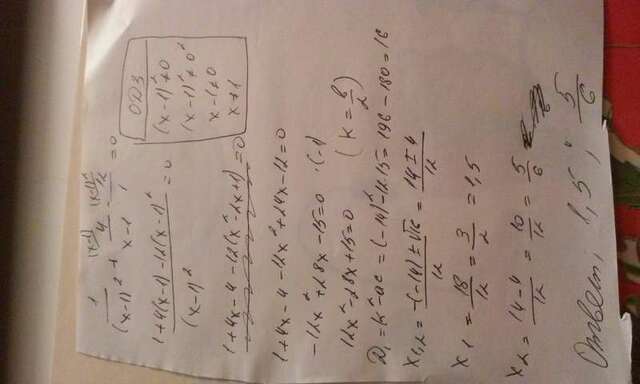 1/(x-1)² + 4/(x-1) ^(x-1) - 12/1 ^(x-1)² = 0
ОДЗ
(x-1)² ≠ 0
(x-1)² ≠ 0²
x-1 ≠ 0
x ≠ 1
(1+4(x-1)-12(x-1)²)/(x-1)² = 0
1+4x-4-12(x²-2x+1) = 0
1+4x-4-12x²+24x-12=0
-12x²+28x-15=0 ·(-1)
12x²-28x+15=0 (K = b/2)
D₁=K²-ac = (-14)²-12·15=196-180=16
x₁,₂ = (-(-14)±√16)/12 = (14±4)/12
x₁ = 18/12 = 3/2 = 1,5
x₂ = (14-4)/12 = 10/12 = 5/6
Ответ, 1,5 ; 5/6